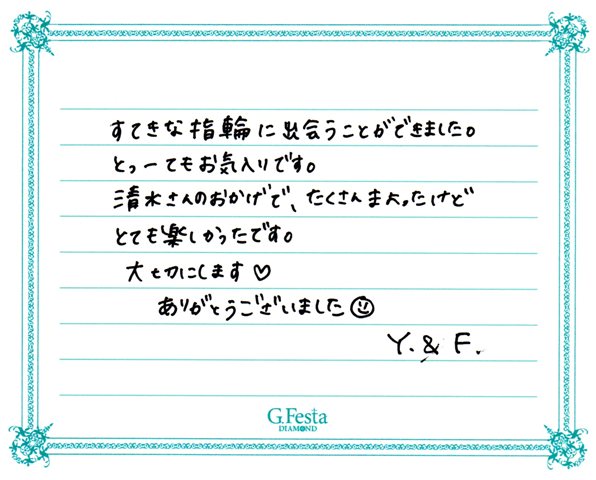 すてきな指輪に出会うことができました。
とってもお気入りです。
清水さんのおかげで、たくさんまよったけど
とても楽しかったです。
大切にします♡
ありがとうございました☺
Y. & F.
G.Festa
DIAMOND